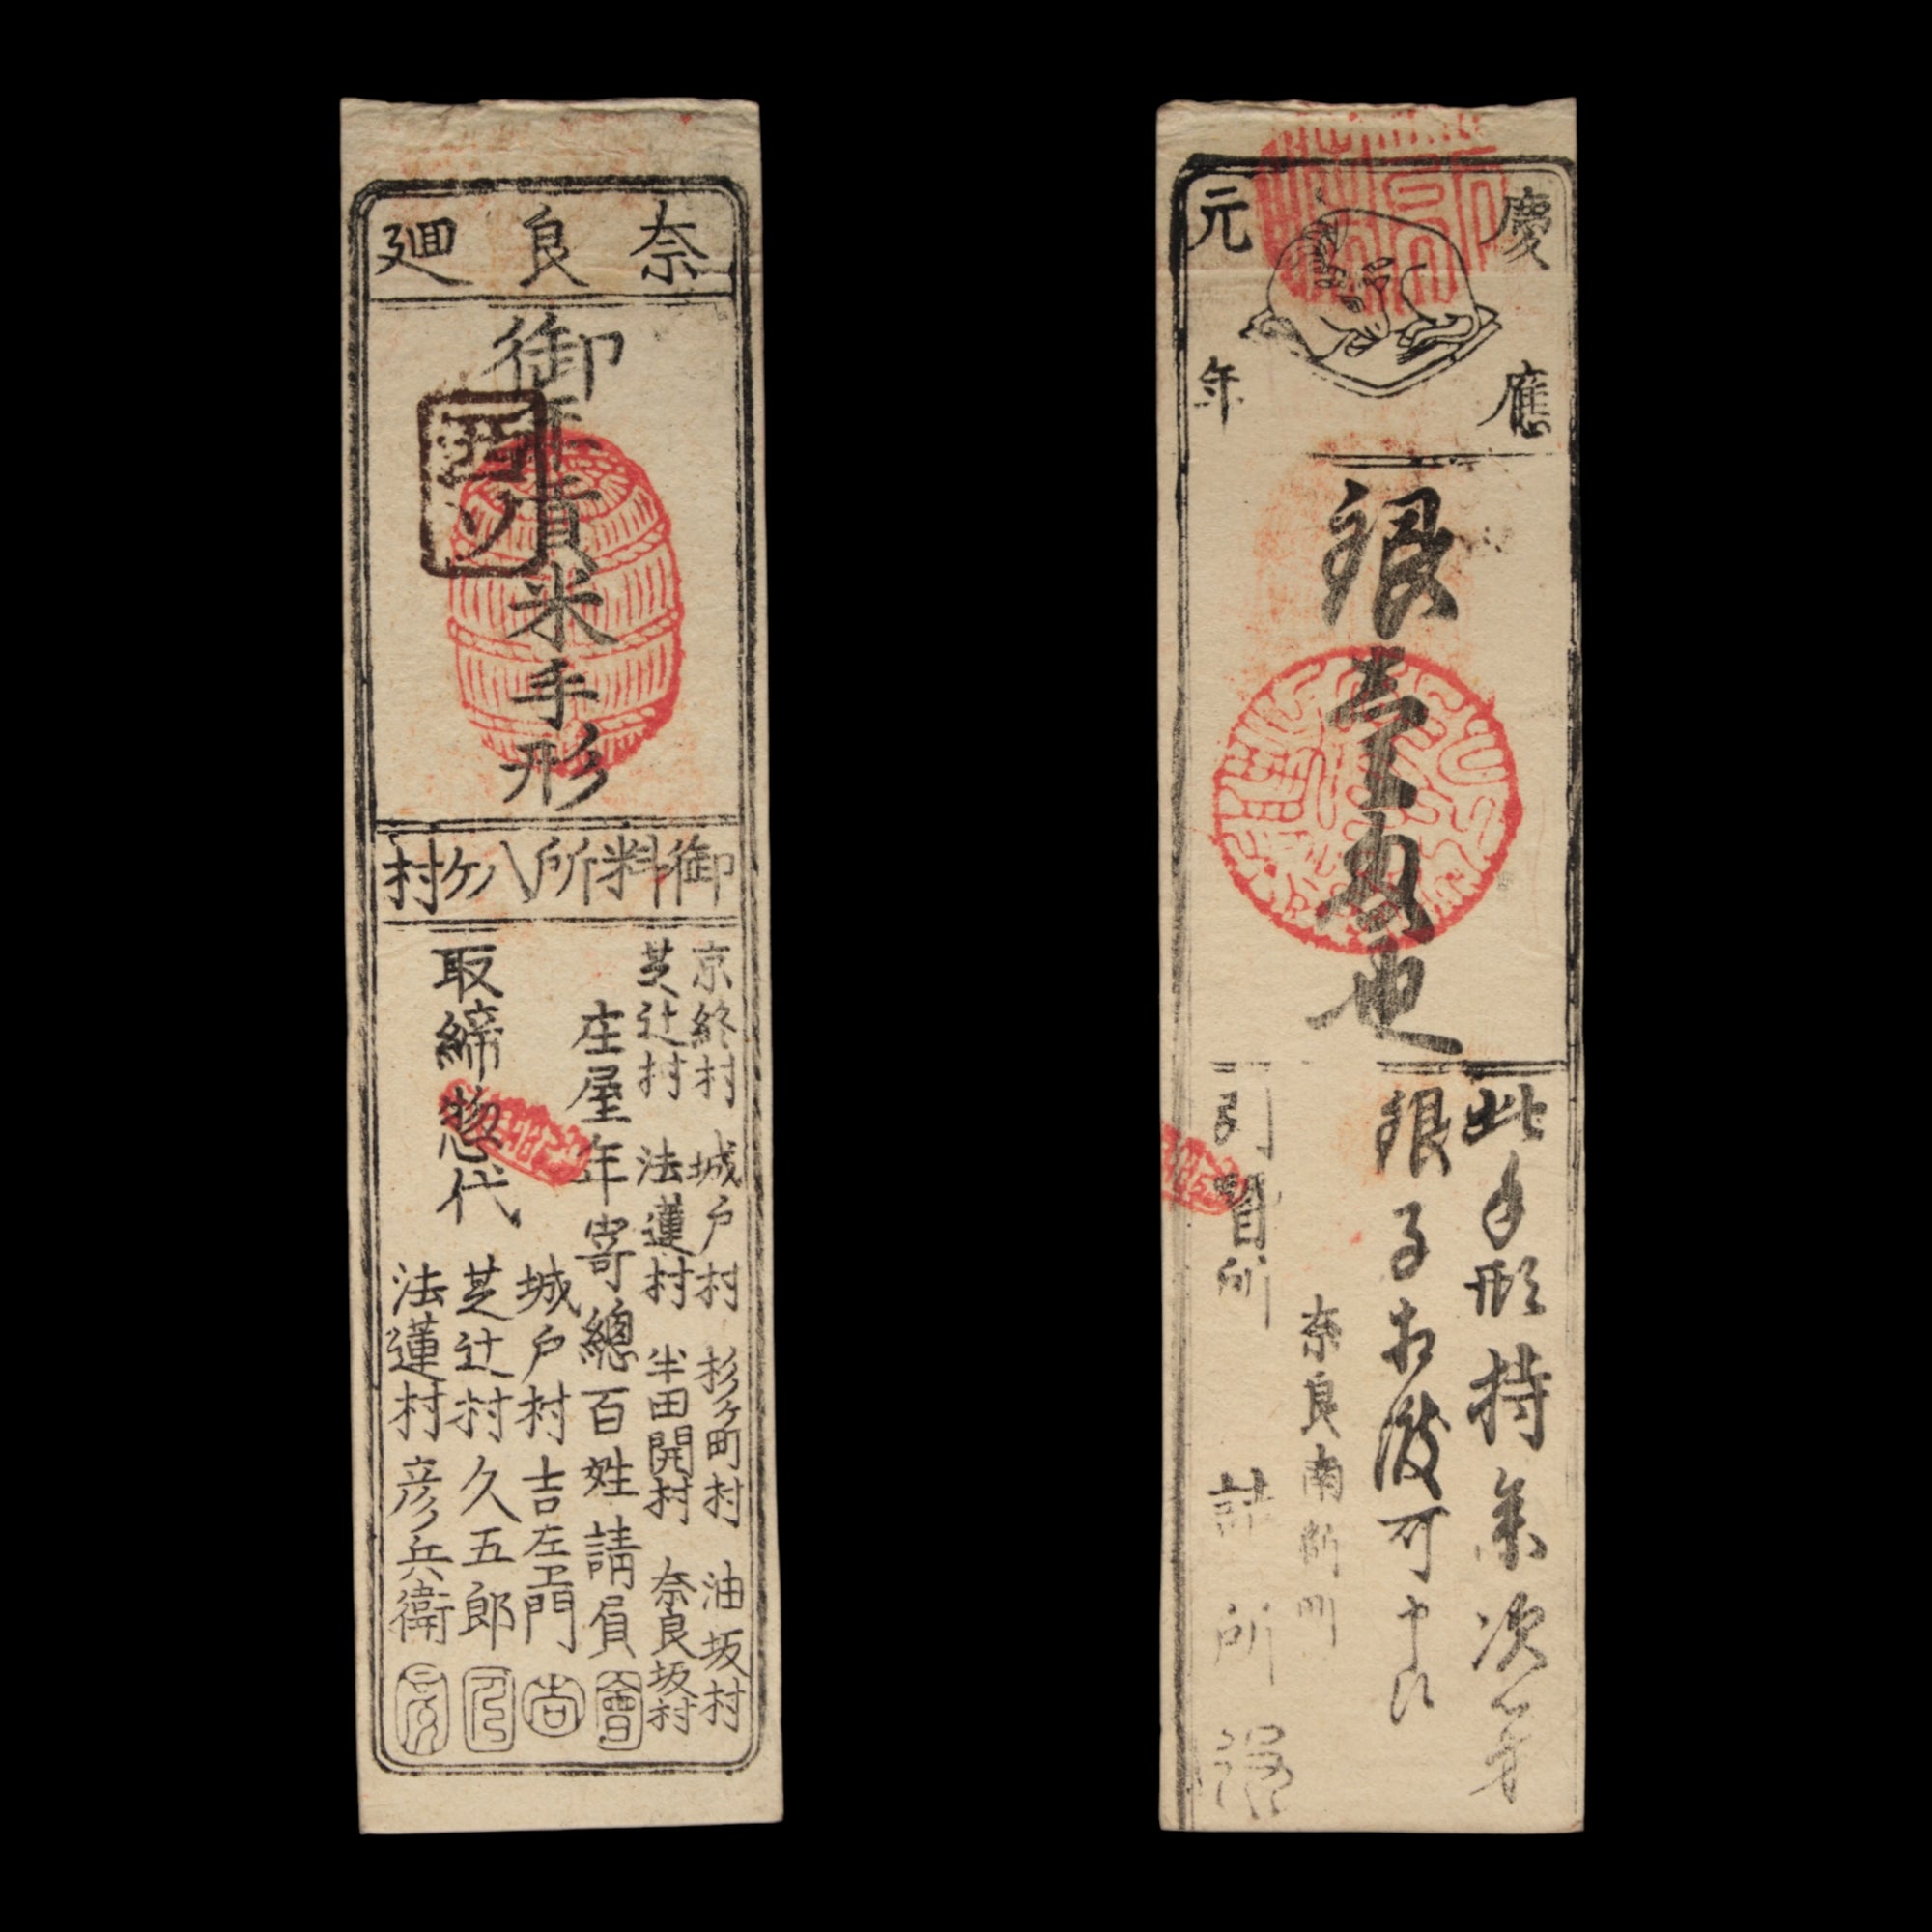 奈良廻
御年貢米手形
西ソ
御料所八ケ村
京終村 城戸村 杉ケ町村 油坂村
芝辻村 法蓮村 半田開村 奈良坂村
庄屋年寄總百姓請負
取締惣代
城戸村吉左衛門
芝辻村久五郎
法蓮村彦兵衛
慶應
元年
銀壹匁也
此手形持参次第
銀子相渡可申候
奈良南
引替所
詰所